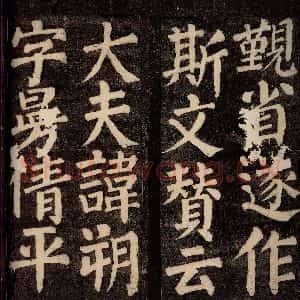 覲省遂作
斯文賛云
大夫諱朔
字曼倩平